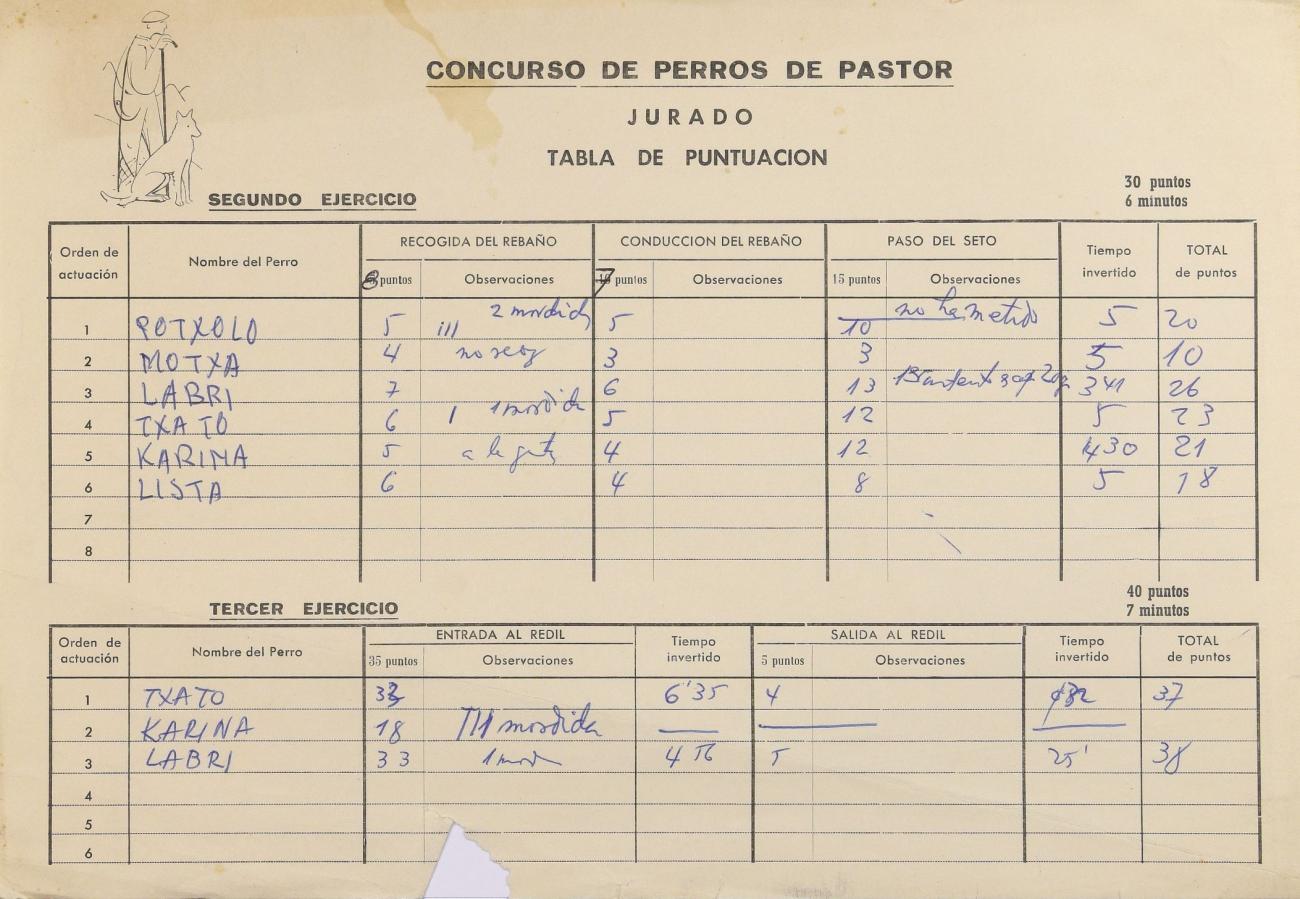 CONCURSO DE PERROS DE PASTOR
JURADO
TABLA DE PUNTUACION
30 puntos
6 minutos
SEGUNDO EJERCICIO
Orden de actuación Nombre del Perro RECOGIDA DEL REBAÑO CONDUCCION DEL REBAÑO PASO DEL SETO Tiempo invertido TOTAL de puntos
8 puntos Observaciones 7 puntos Observaciones 15 puntos Observaciones
1 POTXOLO 5 2 mordida 5 10 no ha metido 5 20
2 MOTXA 4 3 3 5 10
3 LABRI 7 6 13 3 41 26
4 TXATO 6 1 1 mordida 5 12 5 23
5 KARINA 5 4 12 4 30 21
6 LISTA 6 4 8 5 18
7
8
40 puntos
7 minutos
TERCER EJERCICIO
Orden de actuación Nombre del Perro ENTRADA AL REDIL Tiempo invertido SALIDA AL REDIL Tiempo invertido TOTAL de puntos
35 puntos Observaciones 5 puntos Observaciones
1 TXATO 33 6'35 4 37
2 KARINA 18 mordida
3 LABRI 33 5 25' 38
4
5
6